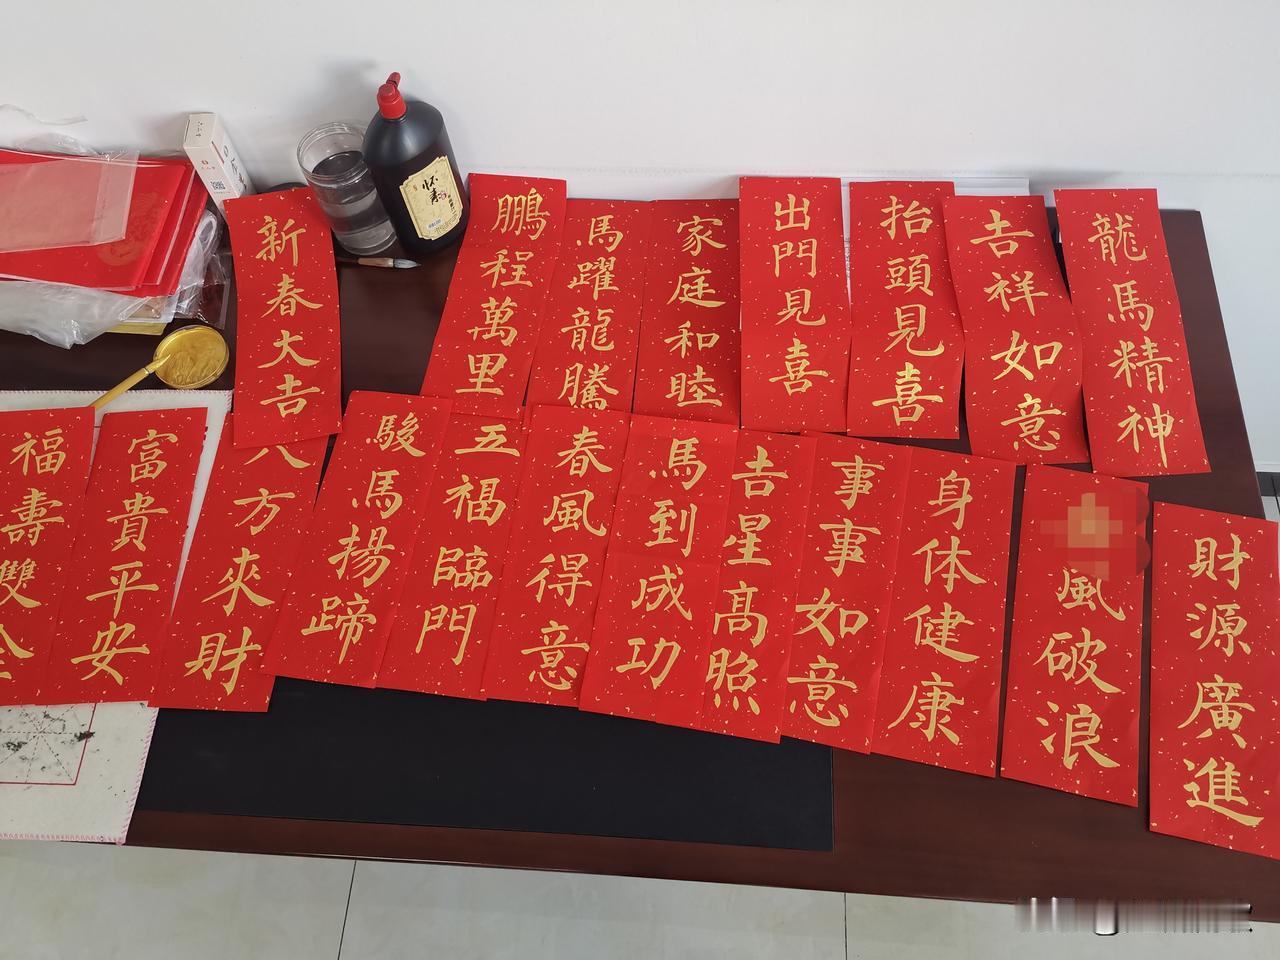 新春大吉
鵬程萬里
馬躍龍騰
家庭和睦
出門見喜
抬頭見喜
吉祥如意
龍馬精神
福壽雙全
富貴平安
八方來財
駿馬揚蹄
五福臨門
春風得意
馬到成功
吉星高照
事事如意
身体健康
風破浪
財源廣進
怀素